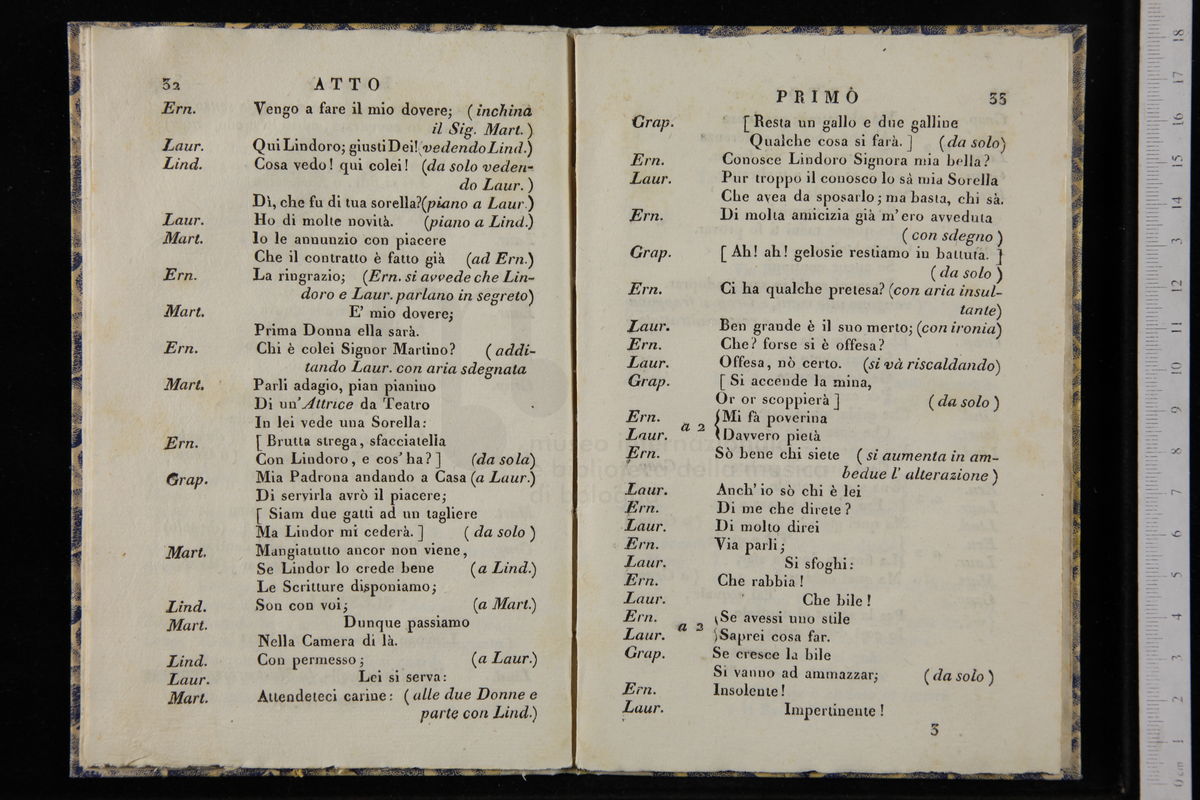 32 ATTO
Ern. Vengo a fare il mio dovere; (inchina
il Sig. Mart.)
Laur. Qui Lindoro; giusti Dei! (vedendo Lind.)
Lind. Cosa vedo! qui colei! (da solo veden-
do Laur.)
Dì, che fu di tua sorella? (piano a Laur.)
Laur. Ho di molte novità. (piano a Lind.)
Mart. Io le annunzio con piacere
Che il contratto è fatto già (ad Ern.)
Ern. La ringrazio; (Ern. si avvede che Lin-
doro e Laur. parlano in segreto)
Mart. E' mio dovere;
Prima Donna ella sarà.
Ern. Chi è colei Signor Martino? (addi-
tando Laur. con aria sdegnata
Mart. Parli adagio, pian pianino
Di un' Attrice da Teatro
In lei vede una Sorella:
Ern. [ Brutta strega, sfacciatella
Con Lindoro, e cos' ha? ] (da sola)
Grap. Mia Padrona andando a Casa (a Laur.)
Di servirla avrò il piacere;
[ Siam due gatti ad un tagliere
Ma Lindor mi cederà. ] (da solo)
Mart. Mangiatutto ancor non viene,
Se Lindor lo crede bene (a Lind.)
Le Scritture disponiamo;
Lind. Son con voi; (a Mart.)
Mart. Dunque passiamo
Nella Camera di là.
Lind. Con permesso; (a Laur.)
Laur. Lei si serva:
Mart. Attendeteci carine: (alle due Donne e
parte con Lind.)
PRIMÒ 33
Grap. [ Resta un gallo e due galline
Qualche cosa si farà. ] (da solo)
Ern. Conosce Lindoro Signora mia bella?
Laur. Pur troppo il conosco lo sà mia Sorella
Che avea da sposarlo; ma basta, chi sà.
Ern. Di molta amicizia già m'ero avveduta
(con sdegno)
Grap. [ Ah! ah! gelosie restiamo in battuta. ]
(da solo)
Ern. Ci ha qualche pretesa? (con aria insul-
tante)
Laur. Ben grande è il suo merto; (con ironia)
Ern. Che? forse si è offesa?
Laur. Offesa, nò certo. (si và riscaldando)
Grap. [ Si accende la mina,
Or or scoppierà ] (da solo)
Ern. Mi fà poverina
a 2
Laur. Davvero pietà
Ern. Sò bene chi siete (si aumenta in am-
bedue l' alterazione)
Laur. Anch' io sò chi è lei
Ern. Di me che direte?
Laur. Di molto direi
Ern. Via parli;
Laur. Si sfoghi:
Ern. Che rabbia!
Laur. Che bile!
Ern. Se avessi uno stile
a 2
Laur. Saprei cosa far.
Grap. Se cresce la bile
Si vanno ad ammazzar; (da solo)
Ern. Insolente!
Laur. Impertinente!
3